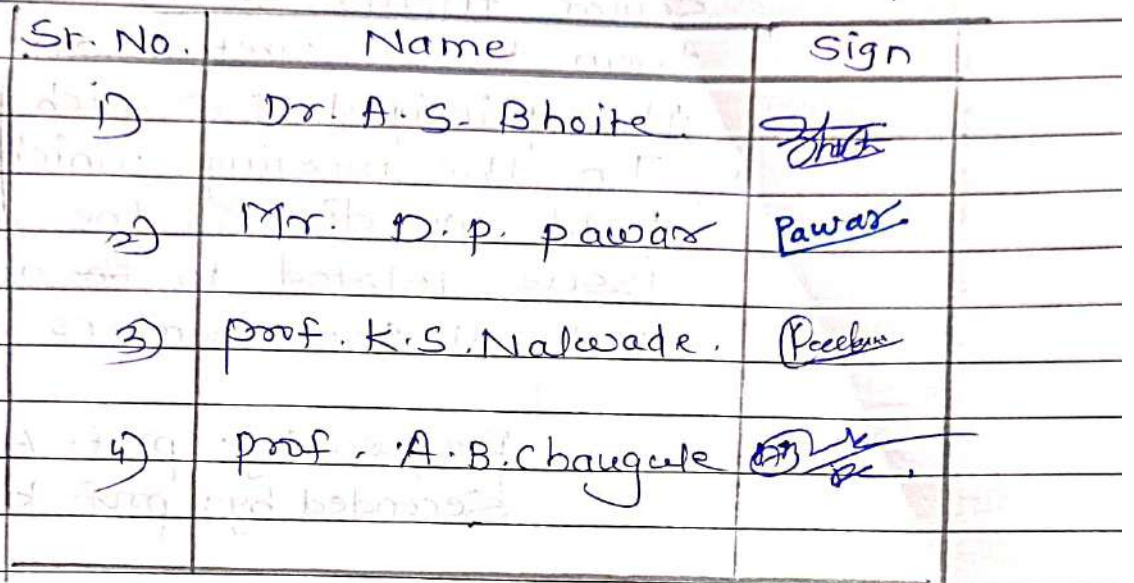 Sr. No. Name Sign
1) Dr. A. S. Bhoite.
2) Mr. D. P. Pawar Pawar
3) Prof. K. S. Nalawade.
4) Prof. A. B. Chaugule